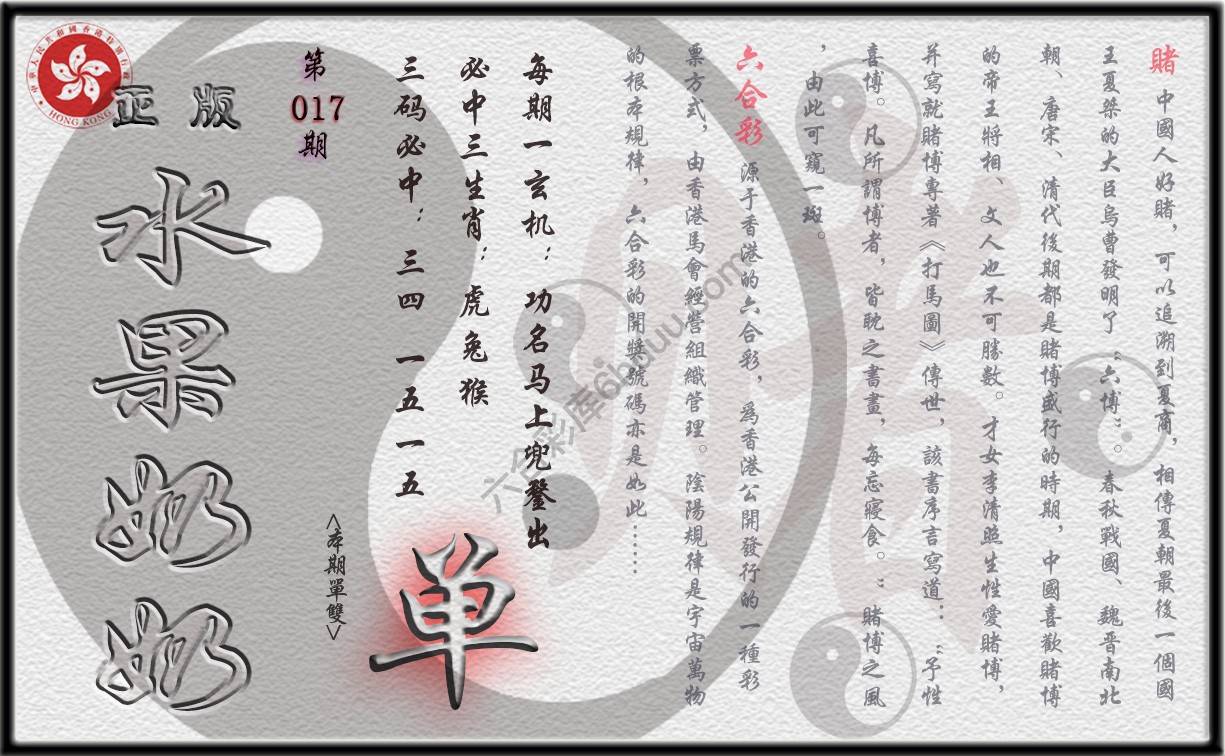 賭 中國人好賭，可以追溯到夏商，相傳夏朝最後一個國
王夏桀的大臣烏曹發明了“六博”。春秋戰國、魏晋南北
朝、唐宋、清代後期都是賭博盛行的時期，中國喜歡賭博
的帝王將相、文人也不可勝數。才女李清照生性愛賭博，
并寫就賭博專著《打馬圖》傳世，該書序言寫道：“予性
喜博。凡所謂博者，皆耽之書畫，每忘寢食。”賭博之風
，由此可窺一斑。
六合彩 源于香港的六合彩，爲香港公開發行的一種彩
票方式，由香港馬會經營組織管理。陰陽規律是宇宙萬物
的根本規律，六合彩的開獎號碼亦是如此……
每期一玄机：功名马上兜登出
必中三生肖：虎兔猴
三码必中：三四 一五一五
单
<本期單雙>
第
017
期
正版
水果奶奶
中華人民共和國香港特別行政區
HONG KONG
六合彩库6hduu.com